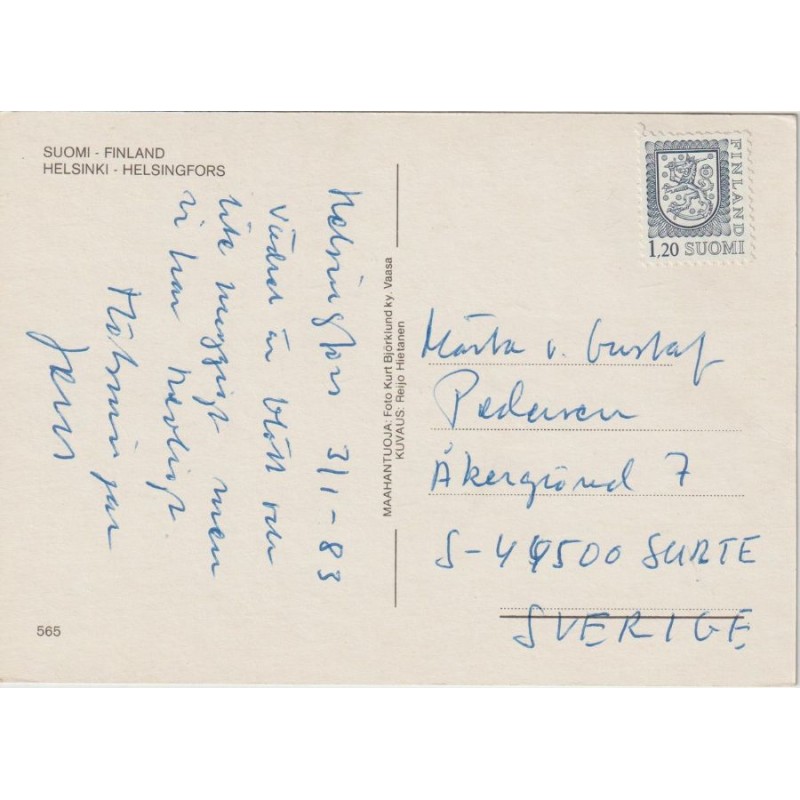 SUOMI - FINLAND
HELSINKI - HELSINGFORS
Helsingfors 3/1-83
Vädret är blött och
lite muggigt men
vi har trevligt
Hälsningar
Jens
MAAHANTUOJA: Foto Kurt Björklund ky. Vaasa
KUVAUS: Reijo Hietanen
FINLAND
1,20 SUOMI
Märta o. Gustaf
Pedersen
Åkergränd 7
S-44500 SURTE
SVERIGE
565